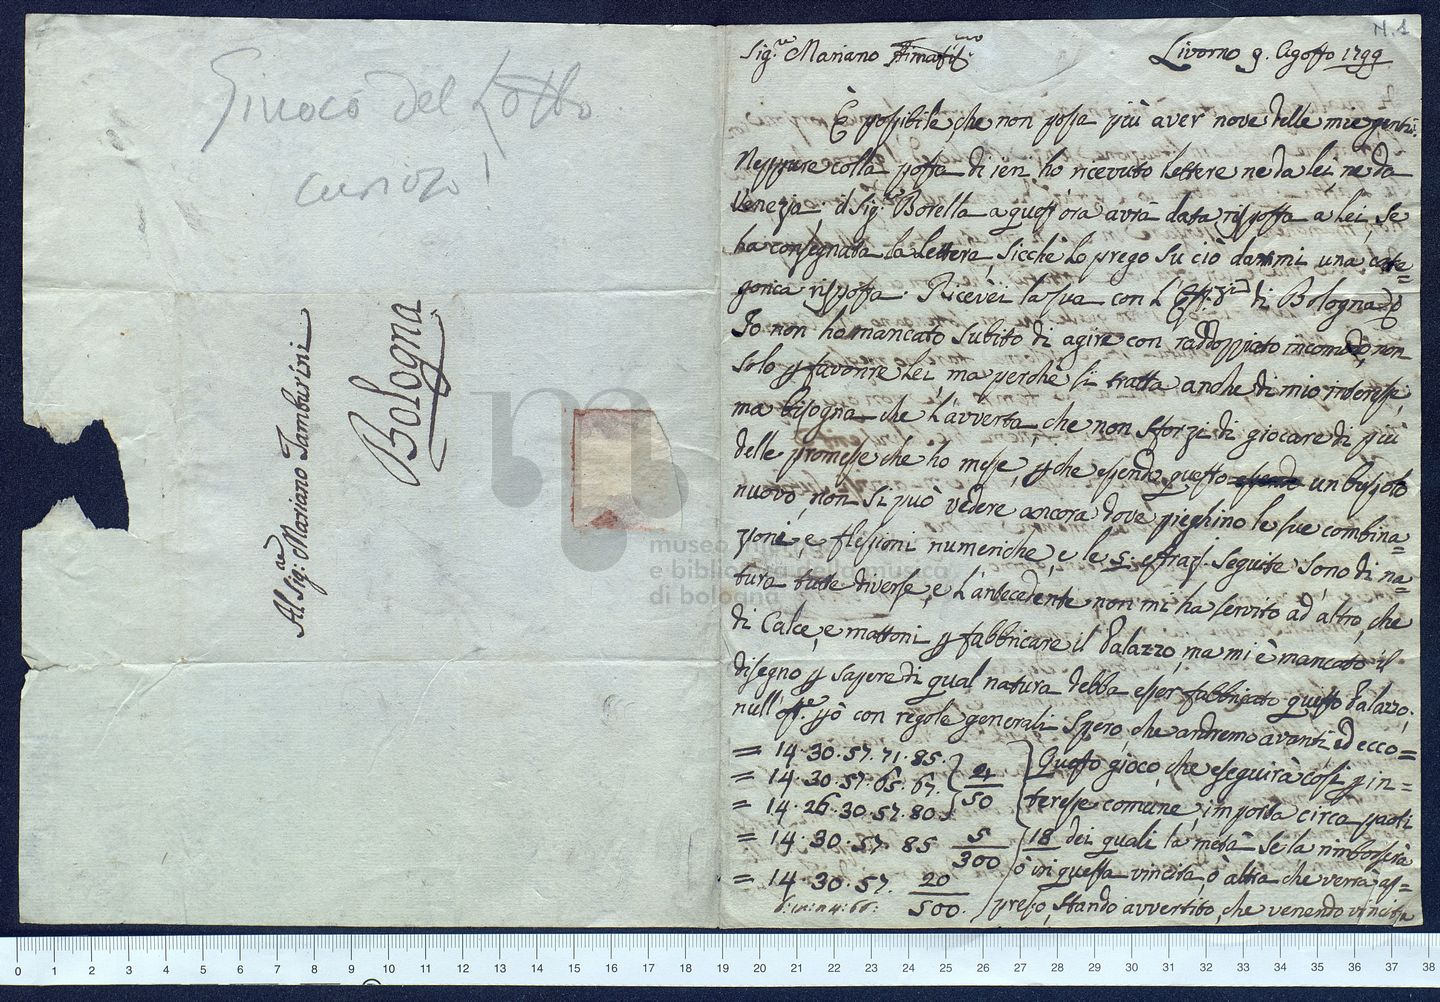 Giuoco del Lotto
curioso!
Al Sig:re Mariano Tamburini
Bologna
museo internazionale
e biblioteca della musica
di bologna
N. 1
Sig:re Mariano Stimatis:mo Livorno 9. Agosto 1799
È possibile, che non possa più aver nove delle mie genti.
Neppure colla posta di ieri ho ricevuto lettere ne da lei ne da
Venezia, il Sig:r Borella a quest'ora avrà data risposta a lei, se
ha consegnata la lettera, sicchè lo prego su ciò darmi una cate=
gorica risposta. Ricevei la sua con L'Estr:zi di Bologna, e
Io non ho mancato subito di agire con raddoppiato incomodo, non
solo p favorire Lei, ma perchè si tratta anche di mio interesse,
ma bisogna che l'avverta, che non sforzi di giocare di più
delle promesse che ho messe, p che essendo questo essendo un bussolo
nuovo, non si può vedere ancora dove pieghino le sue combina=
zioni, e flessioni numeriche, e le 5 estraz. seguite sono di na=
tura tutte diverse, e L'antecedente non mi ha servito ad altro, che
di Calce, e mattoni p fabbricare il Palazzo, ma mi è mancato il
disegno p sapere di qual natura debba esser fabbricato questo Palazzo;
null'ost:e pò con regole generali spero, che andremo avanti, ed ecco=
= 14. 30. 57. 71. 85.
= 14. 30. 57. 65. 67. 4/50
= 14. 26. 30. 57. 80.
= 14. 30. 57. 85 5/300
= 14. 30. 57. 20/500.
Questo gioco, che eseguirà così p in=
teresse comune, importa circa paoli
18 dei quali la metà se la rimborserà
ò in questa vincita, ò altra che verrà ap=
presso, stando avvertito, che venendo vincita
0 1 2 3 4 5 6 7 8 9 10 11 12 13 14 15 16 17 18 19 20 21 22 23 24 25 26 27 28 29 30 31 32 33 34 35 36 37 38